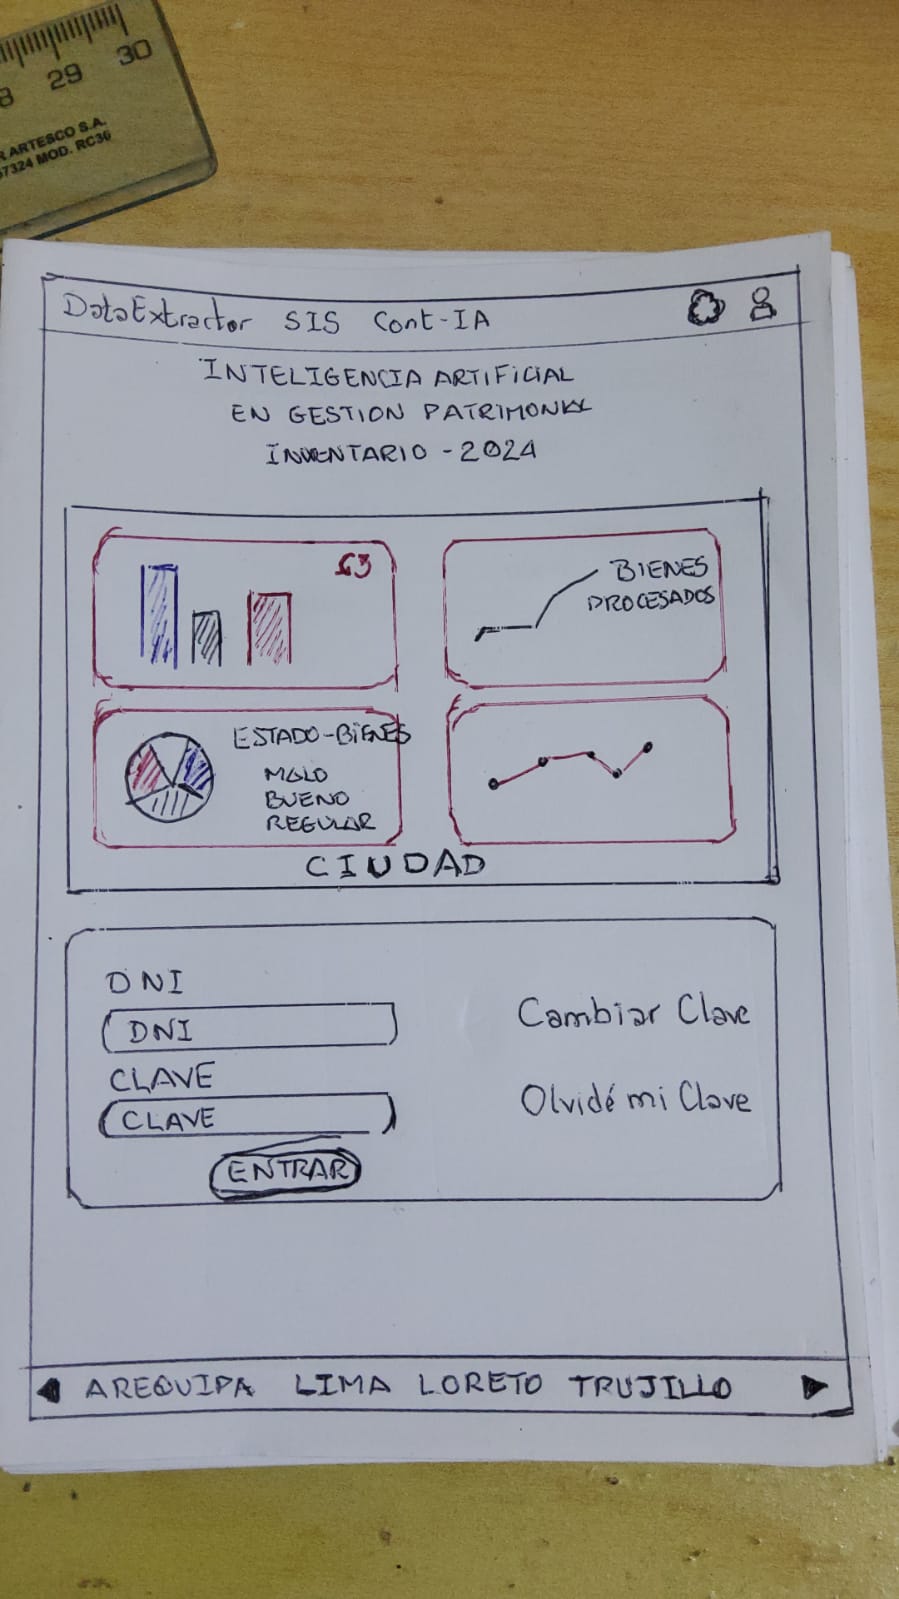 29 30
R ARTESCO S.A.
67324 MOD. RC30
DataExtractor SIS Cont-IA
INTELIGENCIA ARTIFICIAL
EN GESTION PATRIMONIAL
INVENTARIO - 2024
63
BIENES
PROCESADOS
ESTADO-BIENES
MALO
BUENO
REGULAR
CIUDAD
DNI
DNI
CLAVE
CLAVE
ENTRAR
Cambiar Clave
Olvidé mi Clave
AREQUIPA LIMA LORETO TRUJILLO